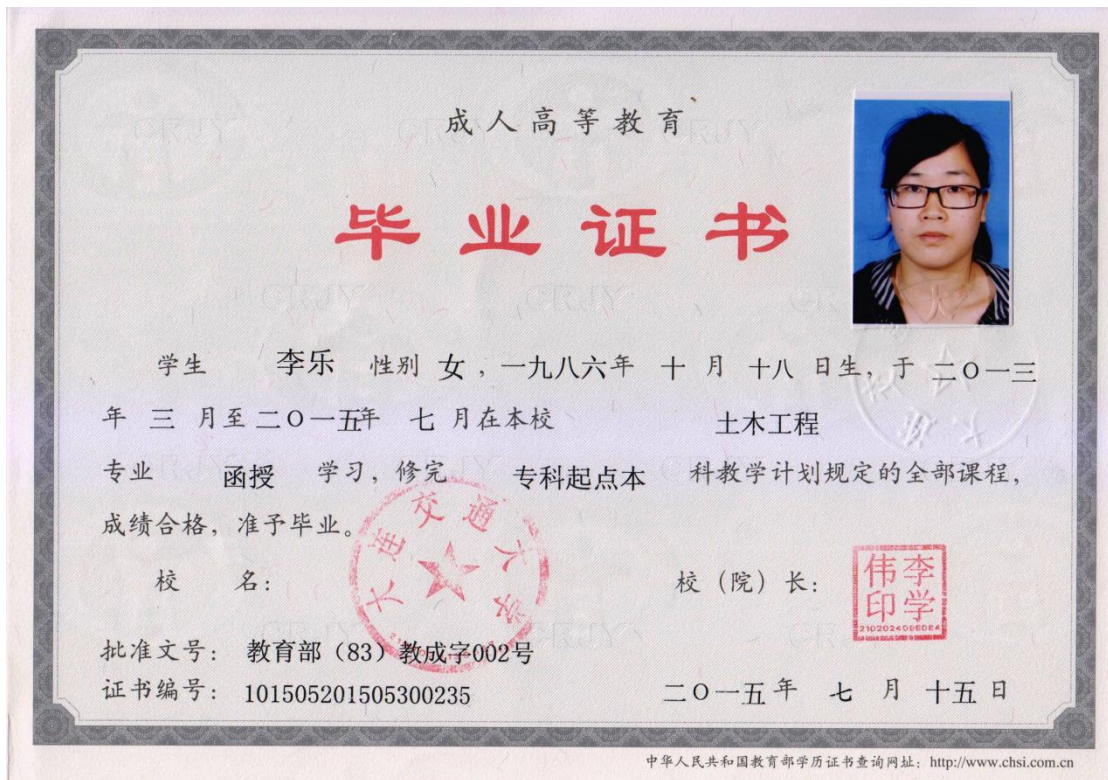 成人高等教育
毕业证书
学生 李乐 性别 女，一九八六年 十 月 十八 日生，于 二〇一三
年 三 月至二〇一五年 七 月在本校 土木工程
专业 函授 学习，修完 专科起点本 科教学计划规定的全部课程，
成绩合格，准予毕业。
大连交通大学
校 名： 校（院）长：
李学伟印
2102024096084
批准文号： 教育部（83）教成字002号
证书编号： 101505201505300235 二〇一五年 七 月 十五 日
中华人民共和国教育部学历证书查询网址：http://www.chsi.com.cn